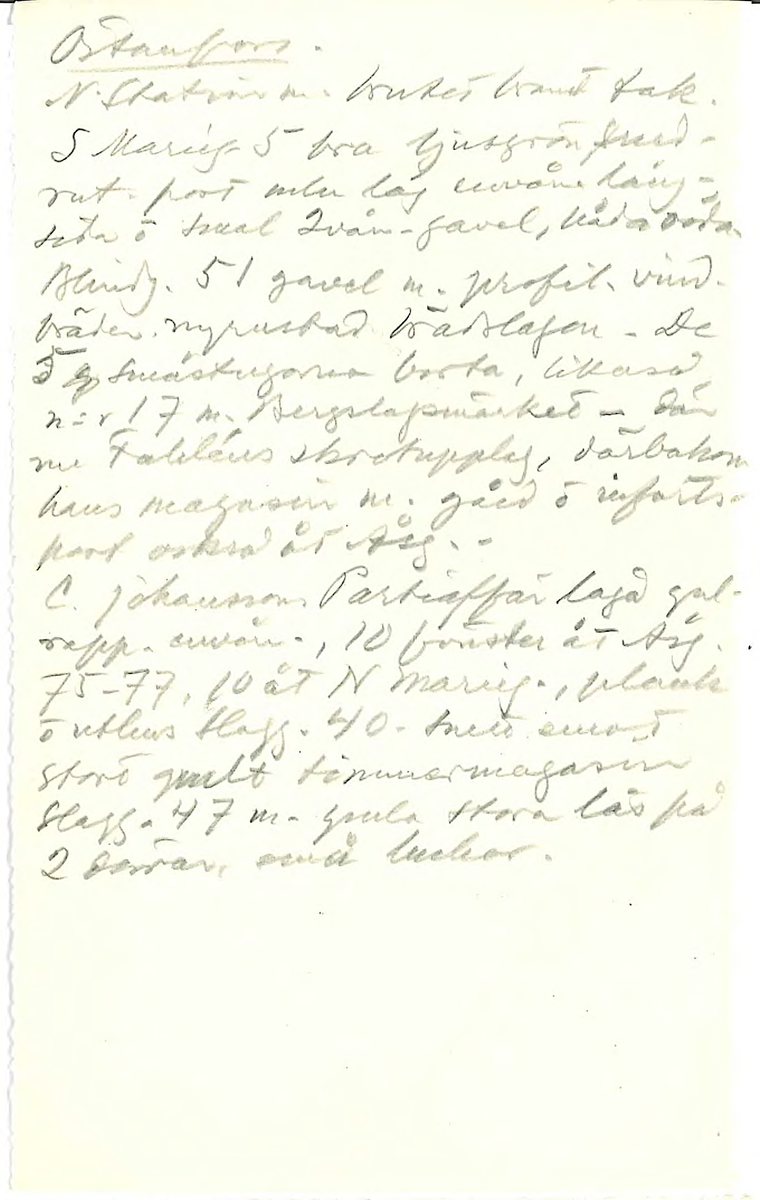 Östanfors.
N. Station m. brutet brant tak.
S Marieg 5 bra ljusgrön
rut. port mln låg envån. lång-
sida ö smal 2vån-gavel, båda röda
Blindg. 51 gavel m. profil. vind-
bräder. nyrustad De
5 g småstugorna borta, likaså
n:r 17 m. Bergslagsmärket - där
nu Fahléns skrotupplag, därbakom
hans magasin m. gård ö infarts-
port också åt Åsg. -
C. Johanssons Partiaffär låga gul-
rapp. envån., 10 fönster åt Åsg.
75-77, 10 åt N Marieg., plank
ö uthus Slagg. 40. Snett emot
stort gult timmermagasin
Slagg. 47 m. gula stora lås på
2 dörrar, små luckor.